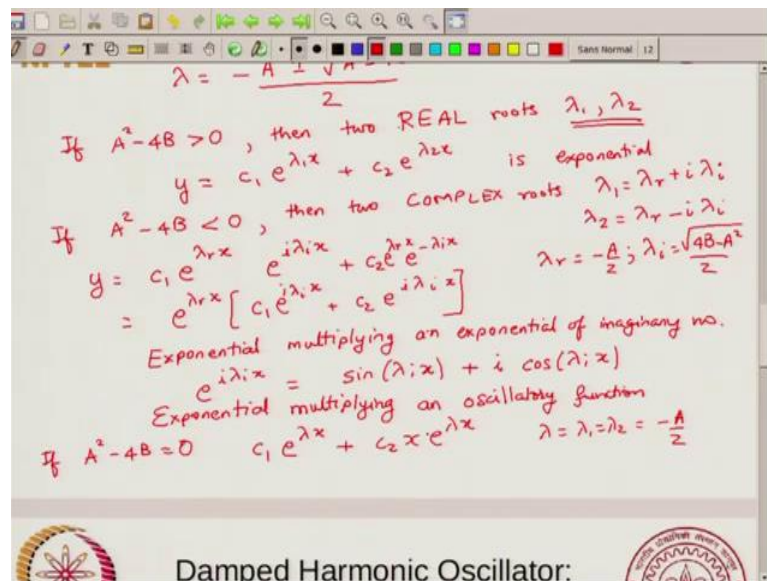 Sans Normal 12
λ = - A ± √A
2
If A²-4B > 0, then two REAL roots λ₁, λ₂
y = c₁ e^{λ₁x} + c₂ e^{λ₂x} is exponential
If A²-4B < 0, then two COMPLEX roots λ₁ = λr + i λi
λ₂ = λr - i λi
y = c₁ e^{λr x} e^{iλi x} + c₂ e^{λr x} e^{-λi x} λr = -A/2 ; λi = √(4B-A²)/2
= e^{λr x} [ c₁ e^{iλi x} + c₂ e^{iλi x} ]
Exponential multiplying an exponential of imaginary no.
e^{iλi x} = sin(λi x) + i cos(λi x)
Exponential multiplying an oscillatory function
If A²-4B = 0 c₁ e^{λx} + c₂ x·e^{λx} λ = λ₁ = λ₂ = -A/2
Damped Harmonic Oscillator: